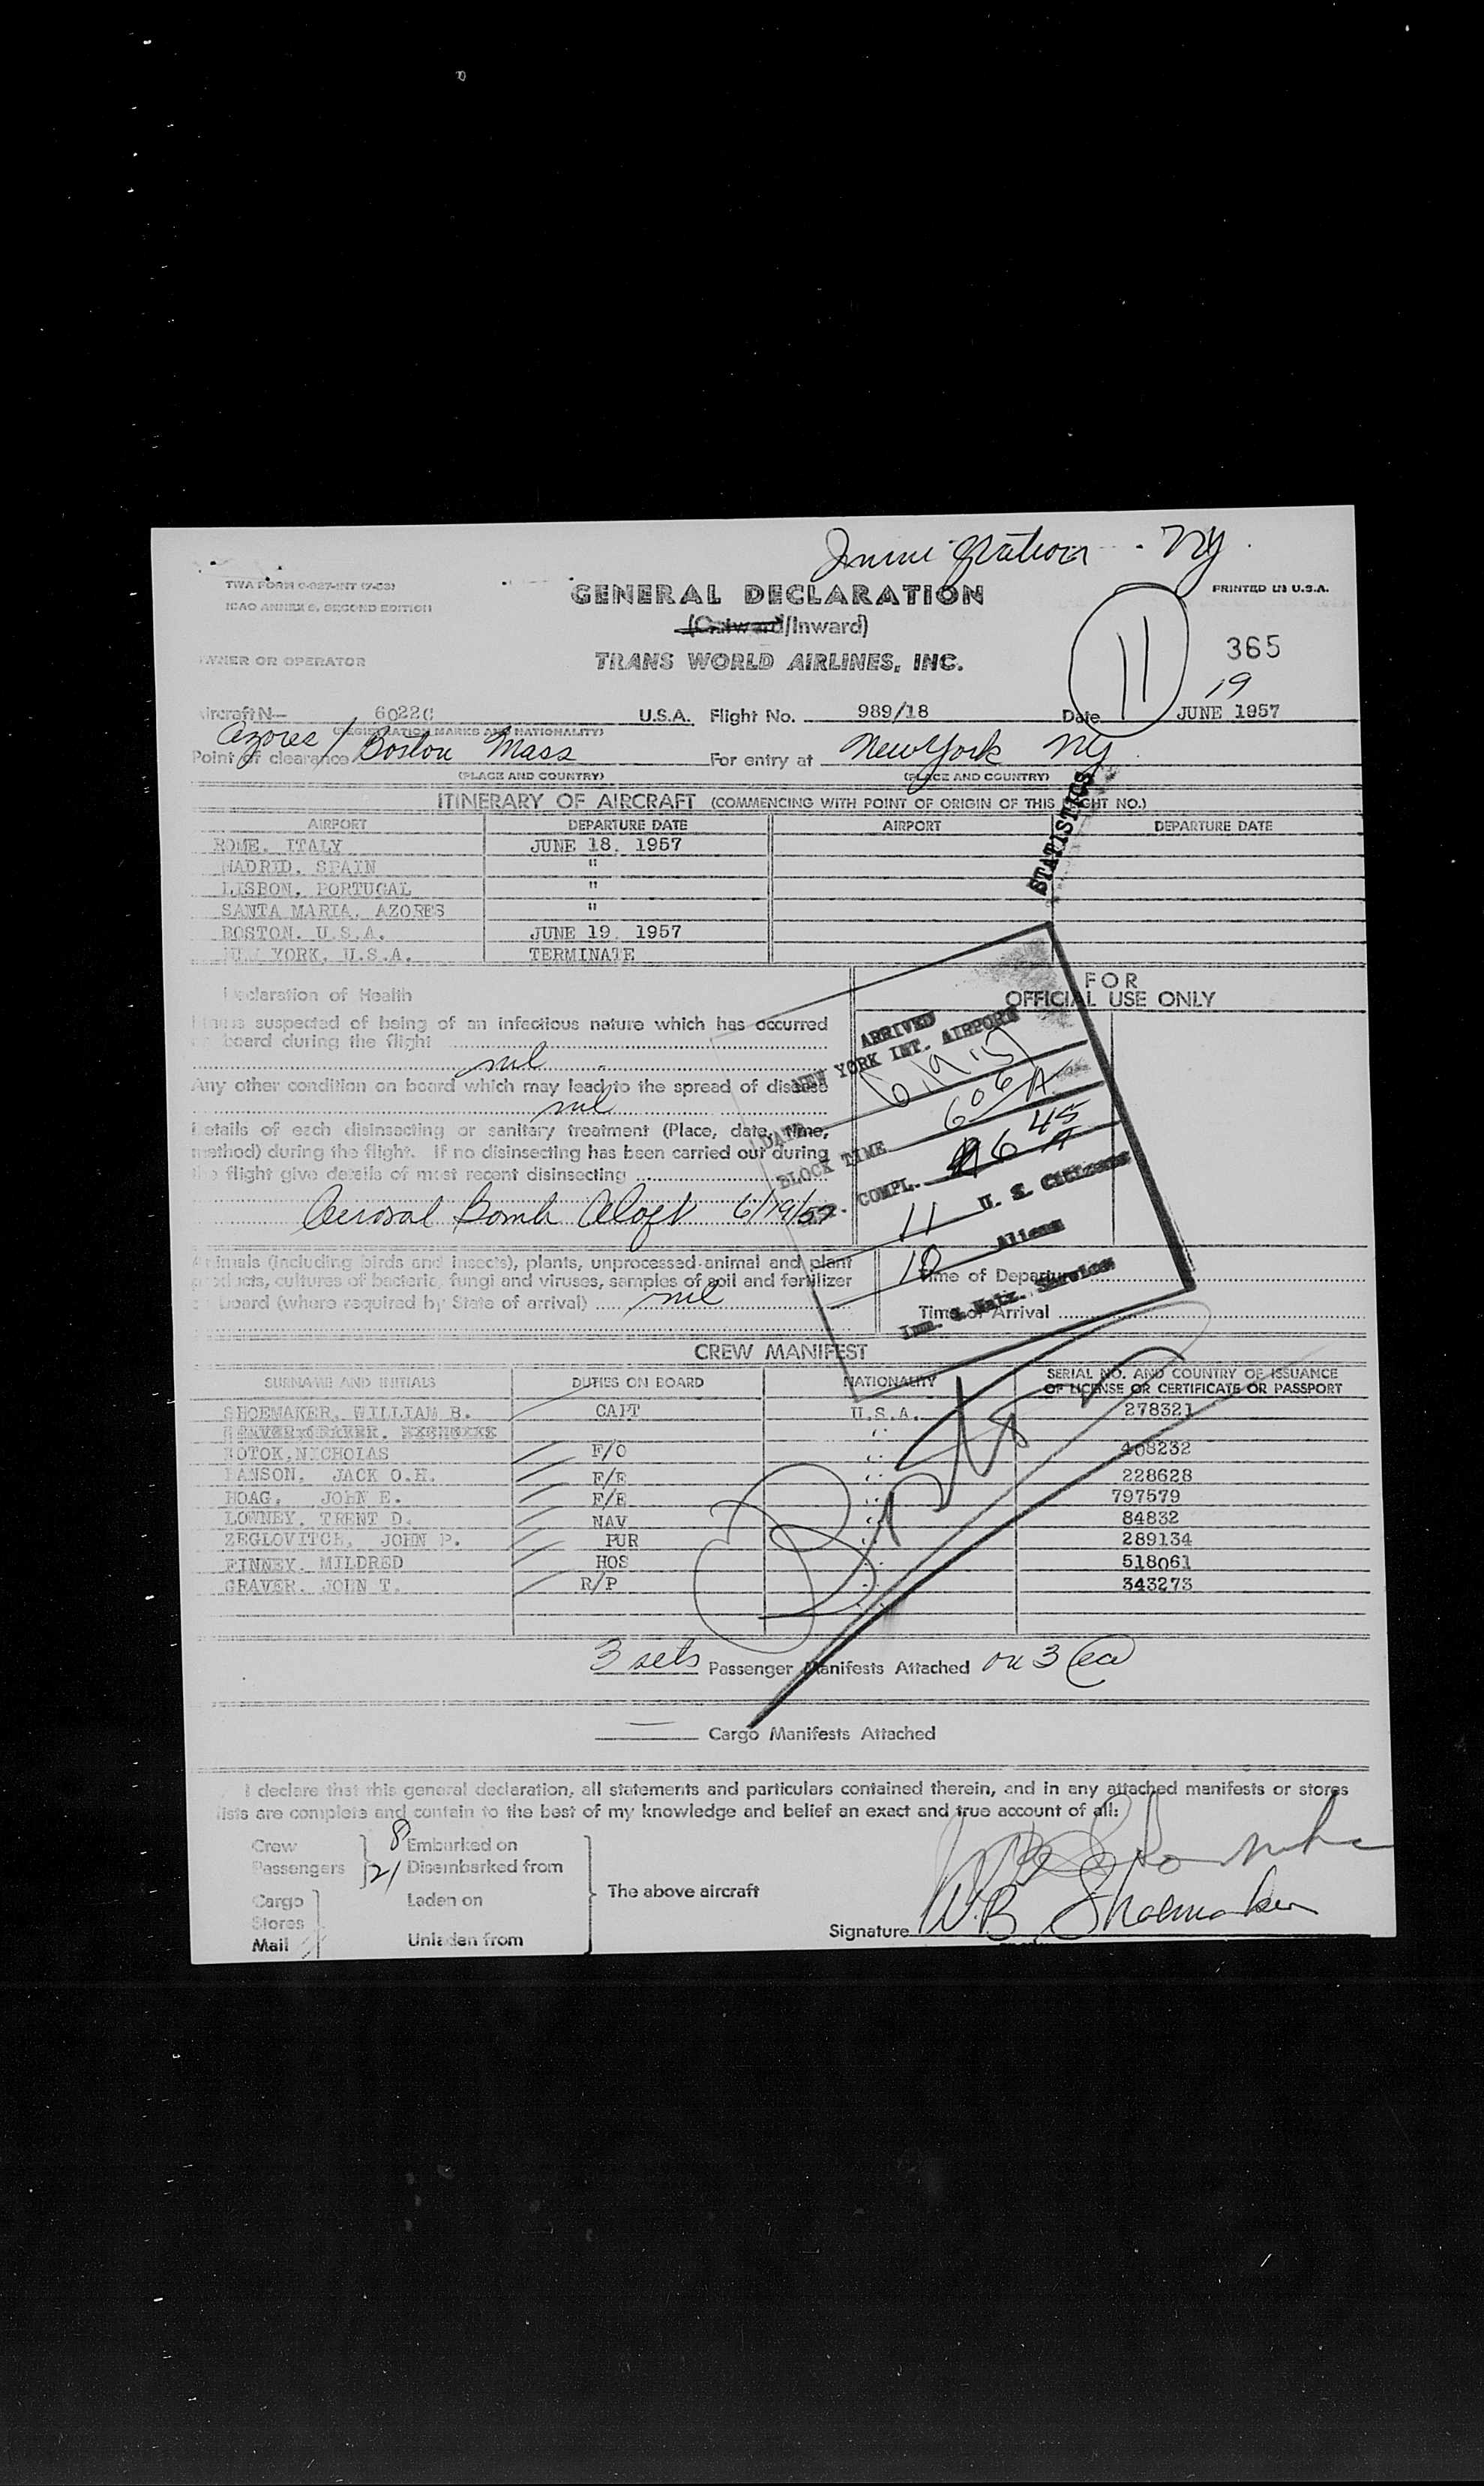 Immigration - NY
TWA FORM C-027-INT (7-53)
ICAO ANNEX 9, SECOND EDITION
GENERAL DECLARATION
PRINTED IN U.S.A.
(Outward/Inward)
11
365
OWNER OR OPERATOR
TRANS WORLD AIRLINES, INC.
19
Aircraft N— 6022C U.S.A. Flight No. 989/18 Date JUNE 1957
(REGISTRATION MARKS AND NATIONALITY)
Azores /
Point of clearance Boston Mass For entry at New York NY
(PLACE AND COUNTRY) (PLACE AND COUNTRY)
STATISTICS
ITINERARY OF AIRCRAFT (COMMENCING WITH POINT OF ORIGIN OF THIS FLIGHT NO.)
AIRPORT DEPARTURE DATE AIRPORT DEPARTURE DATE
ROME, ITALY JUNE 18, 1957
MADRID, SPAIN "
LISBON, PORTUGAL "
SANTA MARIA, AZORES "
BOSTON, U.S.A. JUNE 19, 1957
NEW YORK, U.S.A. TERMINATE
Declaration of Health
FOR
OFFICIAL USE ONLY
Illness suspected of being of an infectious nature which has occurred
on board during the flight
nil
Any other condition on board which may lead to the spread of disease
nil
Details of each disinsecting or sanitary treatment (Place, date, time,
method) during the flight. If no disinsecting has been carried out during
the flight give details of most recent disinsecting
Aerosol Bomb Aloft 6/19/57
ARRIVED
NEW YORK INT. AIRPORT
DATE 6/19/57
BLOCK TIME 606 A
COMPL. 645 A
11 U. S. Citizens
10 Aliens
Imm. & Natz. Service
Animals (including birds and insects), plants, unprocessed animal and plant
products, cultures of bacteria, fungi and viruses, samples of soil and fertilizer
on board (where required by State of arrival) nil
Time of Departure
Time of Arrival
CREW MANIFEST
SURNAME AND INITIALS DUTIES ON BOARD NATIONALITY SERIAL NO. AND COUNTRY OF ISSUANCE
OF LICENSE OR CERTIFICATE OR PASSPORT
SHOEMAKER, WILLIAM B. CAPT U.S.A. 278321
KOTOK, NICHOLAS F/O " 408232
HANSON, JACK O.H. F/E " 228628
HOAG, JOHN E. F/E " 797579
LOWNEY, TRENT D. NAV " 84832
ZEGLOVITCH, JOHN P. PUR " 289134
FINNEY, MILDRED HOS " 518061
GRAVER, JOHN T. R/P " 343273
3 sets Passenger Manifests Attached on 3 ea
Cargo Manifests Attached
I declare that this general declaration, all statements and particulars contained therein, and in any attached manifests or stores
lists are complete and contain to the best of my knowledge and belief an exact and true account of all:
Crew 8 Embarked on
Passengers 21 Disembarked from
Cargo Laden on
The above aircraft
Stores
Mail Unladen from
Signature W.B. Shoemaker